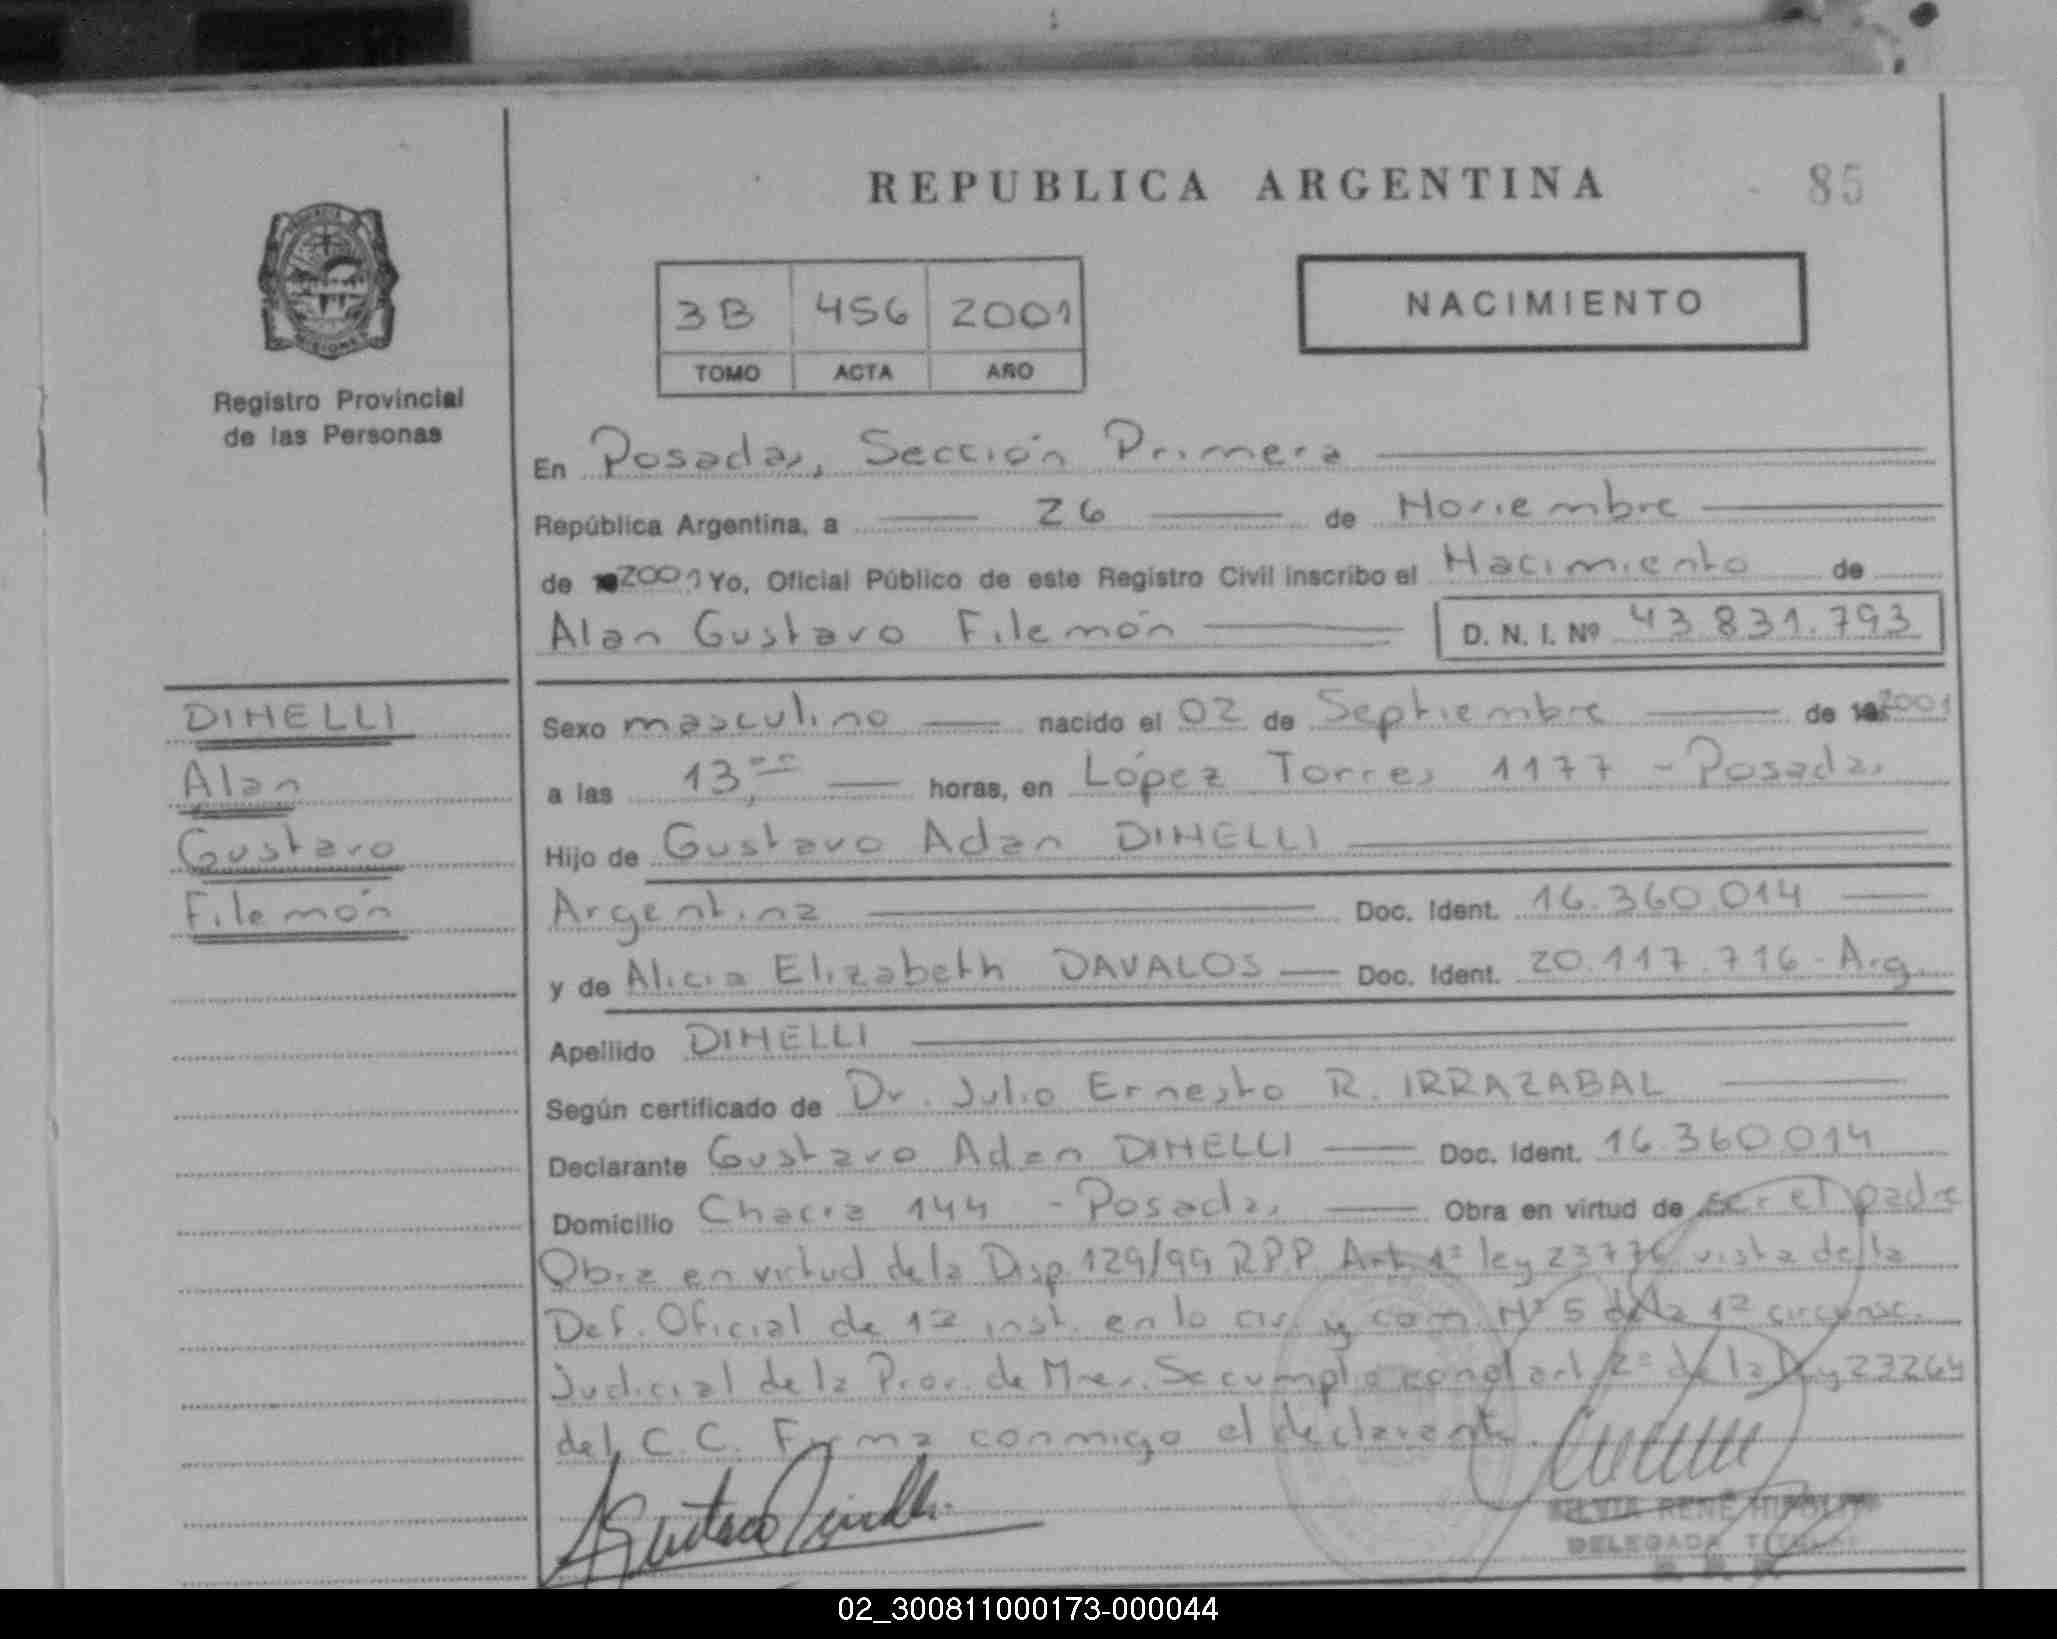 REPUBLICA ARGENTINA
85
3B 456 2001
TOMO ACTA AÑO
NACIMIENTO
MISIONES
Registro Provincial
de las Personas
En Posadas, Sección Primera
República Argentina, a 26 de Noviembre
de 2001 Yo, Oficial Público de este Registro Civil inscribo el Nacimiento de
Alan Gustavo Filemón D. N. I. Nº 43.831.793
DINELLI
Alan
Gustavo
Filemón
Sexo masculino nacido el 02 de Septiembre de 2001
a las 13,00 horas, en López Torres 1177 - Posadas
Hijo de Gustavo Adan DINELLI
Argentina Doc. Ident. 16.360.014
y de Alicia Elizabeth DAVALOS Doc. Ident. 20.117.716 - Arg.
Apellido DINELLI
Según certificado de Dr. Julio Ernesto R. IRRAZABAL
Declarante Gustavo Adan DINELLI Doc. Ident. 16.360.014
Domicilio Chacra 144 - Posadas Obra en virtud de ser el padre
Obra en virtud de la Disp. 129/99 RPP Art. 1º ley 23776 vista de la
Def. Oficial de 1ª inst. en lo civ. y com. Nº 5 de la 1ª circunsc.
Judicial de la Prov. de Mnes. Se cumplio con el art. 2º de la Ley 23264
del C.C. Firma conmigo el declarante.
Gustavo Dinelli
SILVIA RENÉ HIPOLITO
DELEGADA TITULAR
02_300811000173-000044